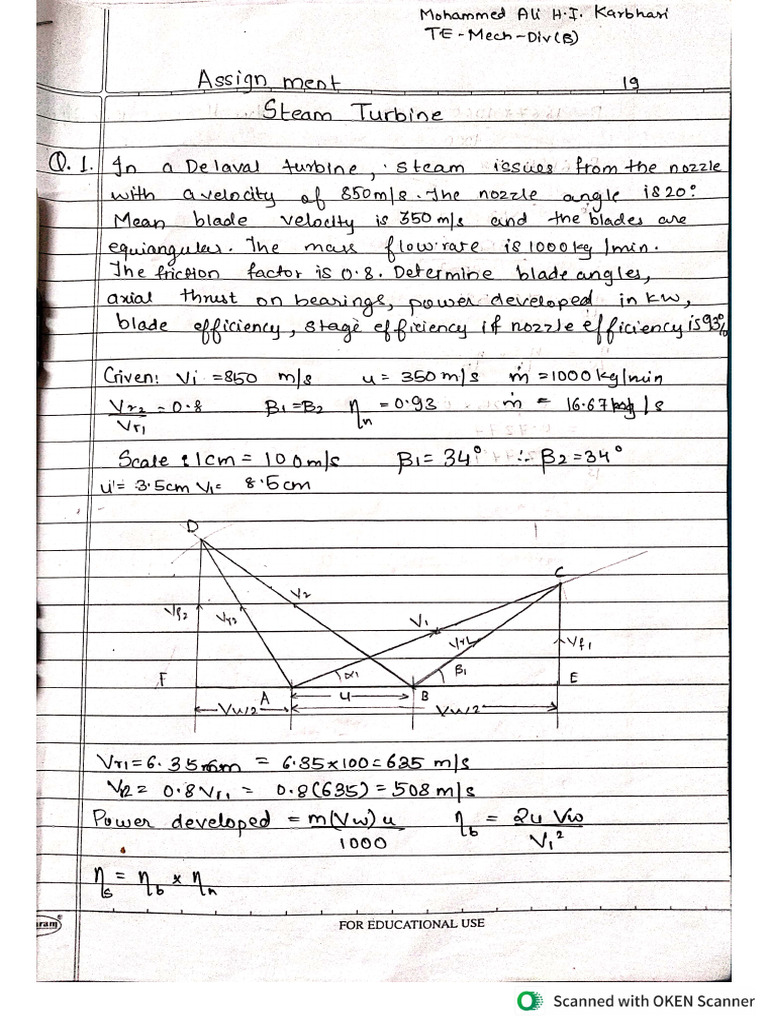 Mohammed Ali H.I. Karbhari
TE-Mech-Div(B)
Assignment 19
Steam Turbine
Q.1. In a Delaval turbine, steam issues from the nozzle
with a velocity of 850m/s. The nozzle angle is 20°
Mean blade velocity is 350 m/s and the blades are
equiangular. The mass flow rate is 1000kg/min.
The friction factor is 0.8. Determine blade angles,
axial thrust on bearings, power developed in kw,
blade efficiency, stage efficiency if nozzle efficiency is 93%
Given: Vi = 850 m/s u = 350 m/s ṁ = 1000 kg/min
Vr2/Vr1 = 0.8 β1 = β2 ηn = 0.93 ṁ = 16.67 kg/s
Scale : 1cm = 100m/s β1 = 34° ∴ β2 = 34°
u = 3.5cm V1 = 8.5cm
D
C
V2
V1
Vf2 Vr2 Vr1 Vf1
F α1 β1 E
A u B
Vw/2 Vw/2
Vr1 = 6.35 cm = 6.35×100 = 635 m/s
V2 = 0.8 Vr1 = 0.8(635) = 508 m/s
Power developed = m(Vw)u/1000 ηb = 2u Vw/V1²
ηs = ηb × ηn
ram
FOR EDUCATIONAL USE
Scanned with OKEN Scanner